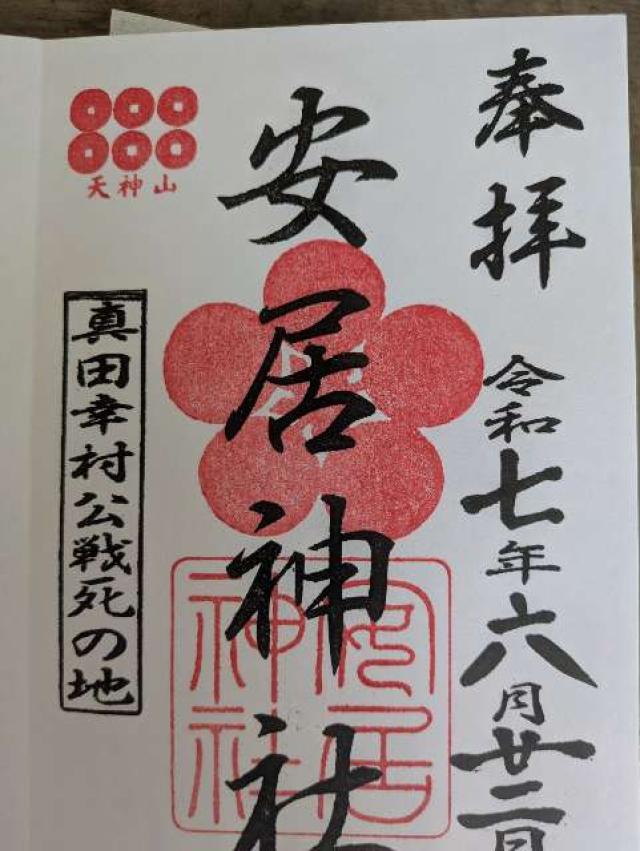 奉拝
令和七年六月廿二日
安居神社
安居神社
天神山
真田幸村公戦死の地